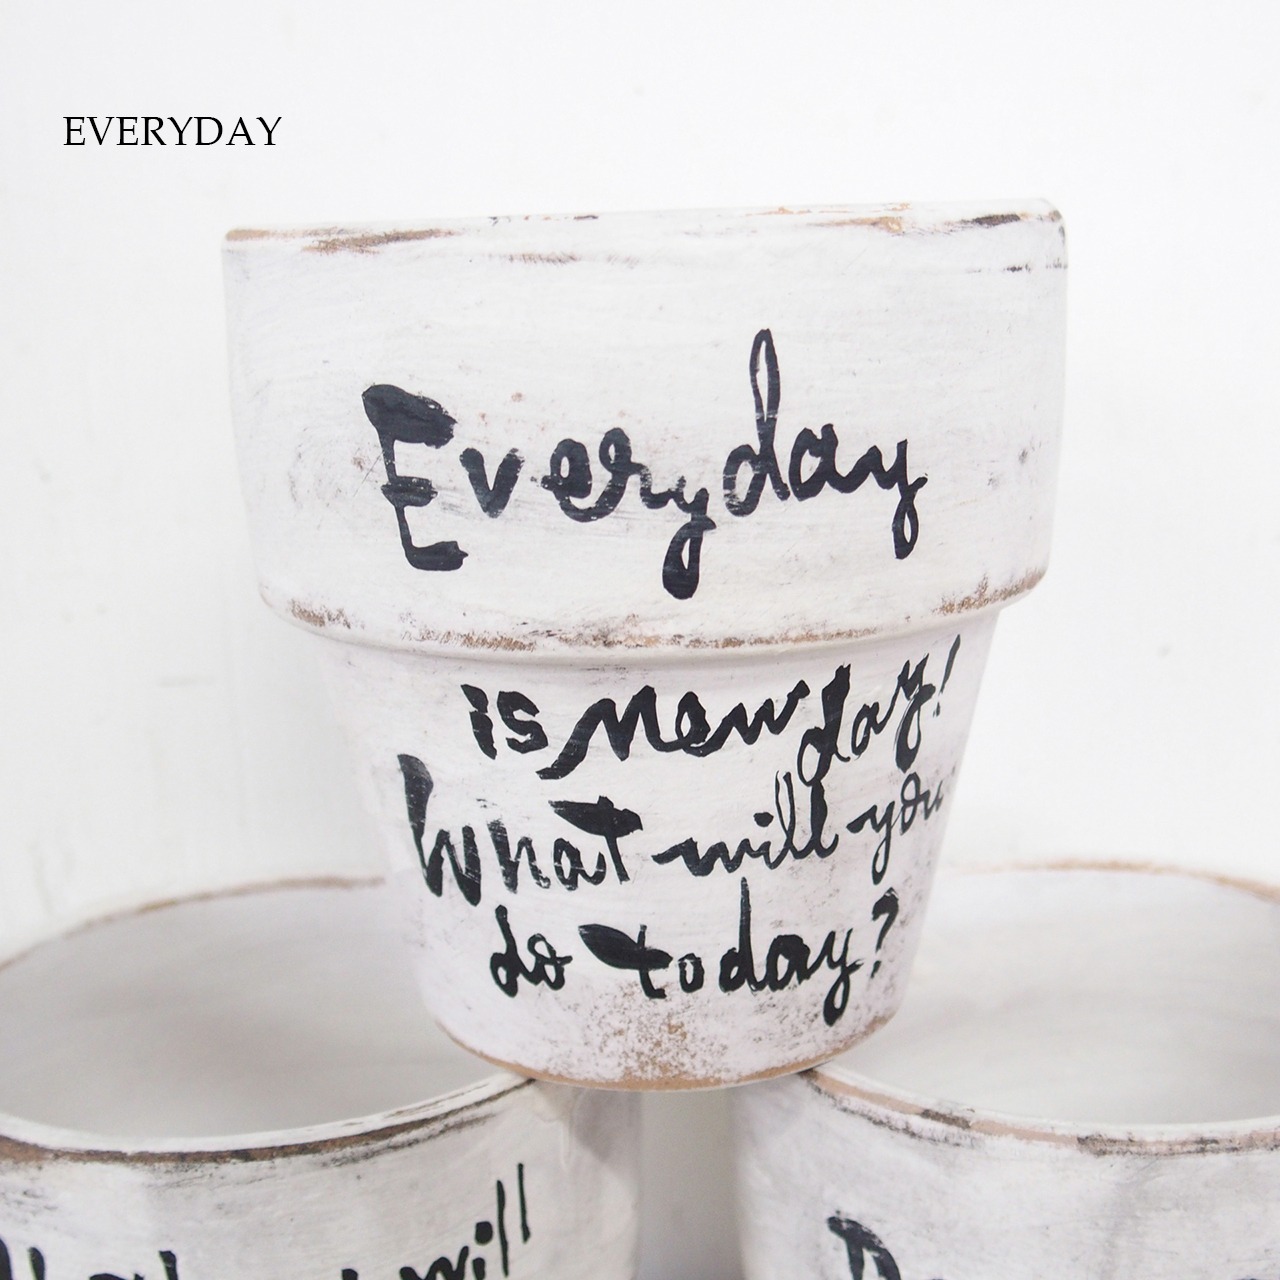 EVERYDAY
Everyday
is New day!
What will you
do today?
will